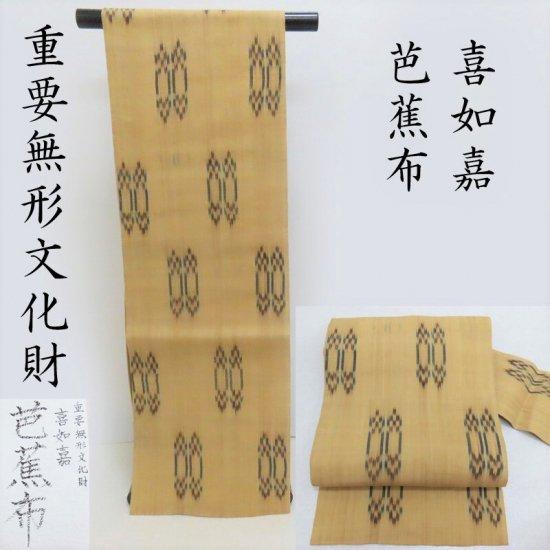 喜如嘉
芭蕉布
重要無形文化財
重要無形文化財
喜如嘉
芭蕉布